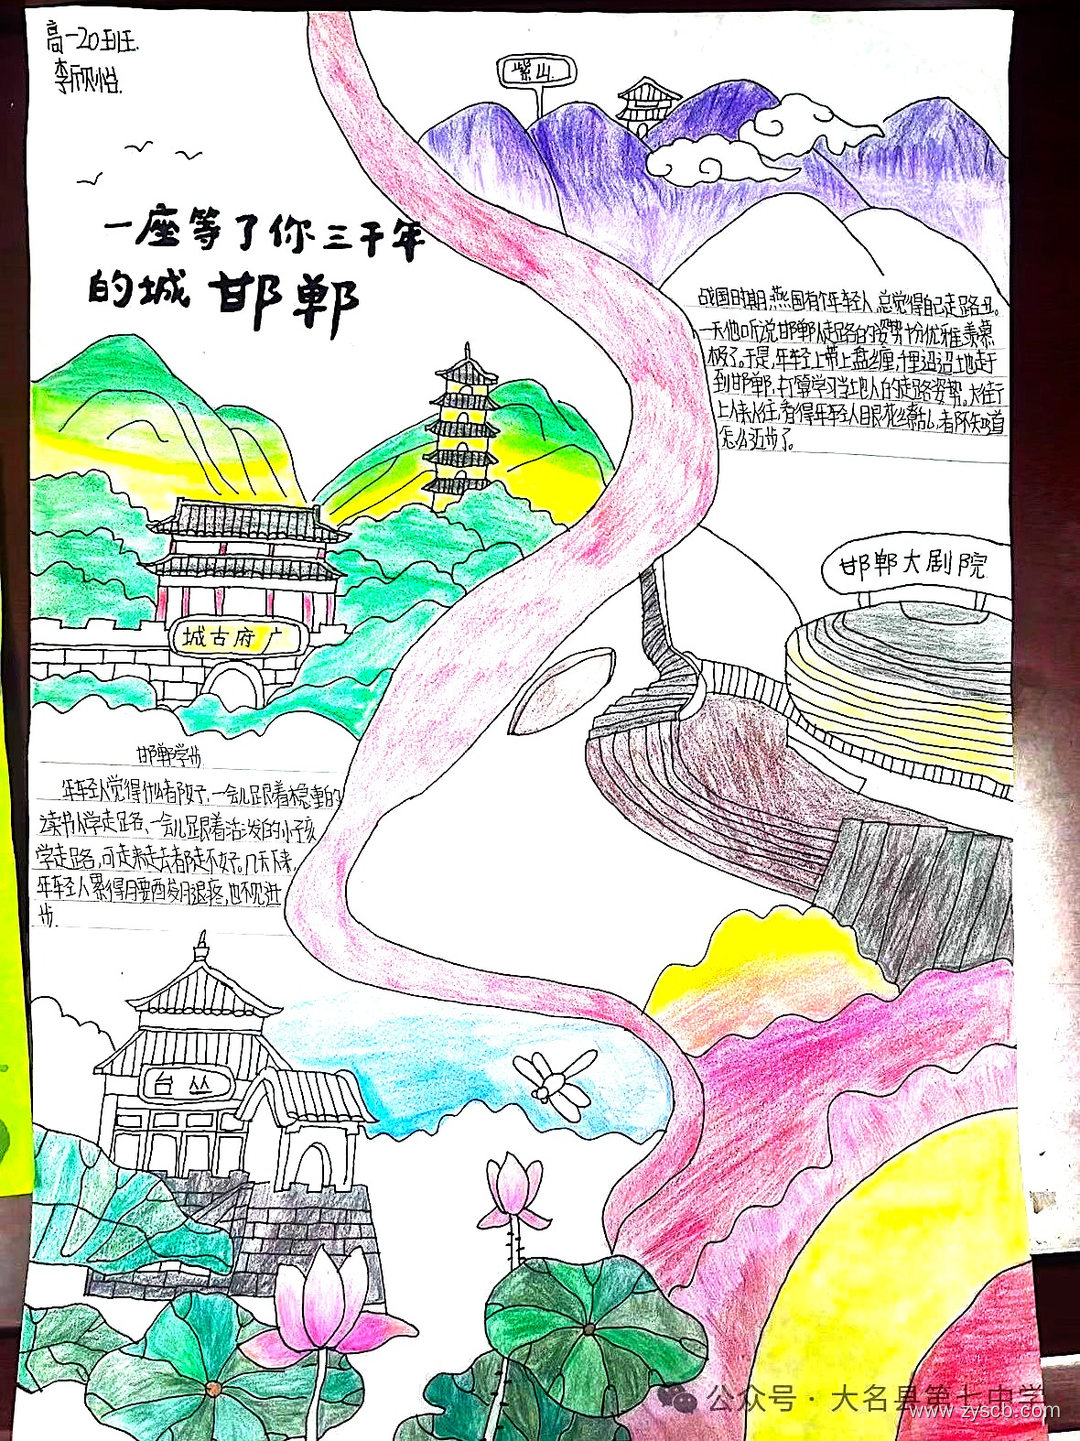 高一20班
李欣怡
紫山
一座等了你三千年
的城 邯郸
战国时期,燕国有个年轻人,总觉得自己走路丑。
一天他听说邯郸人走路的姿势十分优雅,羡慕
极了。于是,年轻上带上盘缠,千里迢迢地赶
到邯郸,打算学习当地人的走路姿势。大街
上人来人往,看得年轻人眼花缭乱,都不知道
怎么迈步了。
邯郸大剧院
城古府广
邯郸学步
年轻人觉得什么都好,一会儿跟着稳重的
读书人学走路,一会儿跟着活泼的小孩
学走路,可走来走去都走不好。几天下来,
年轻人累得腰酸腿疼,也不见进
步.
台丛
公众号·大名县第七中学
www.zyscb.com